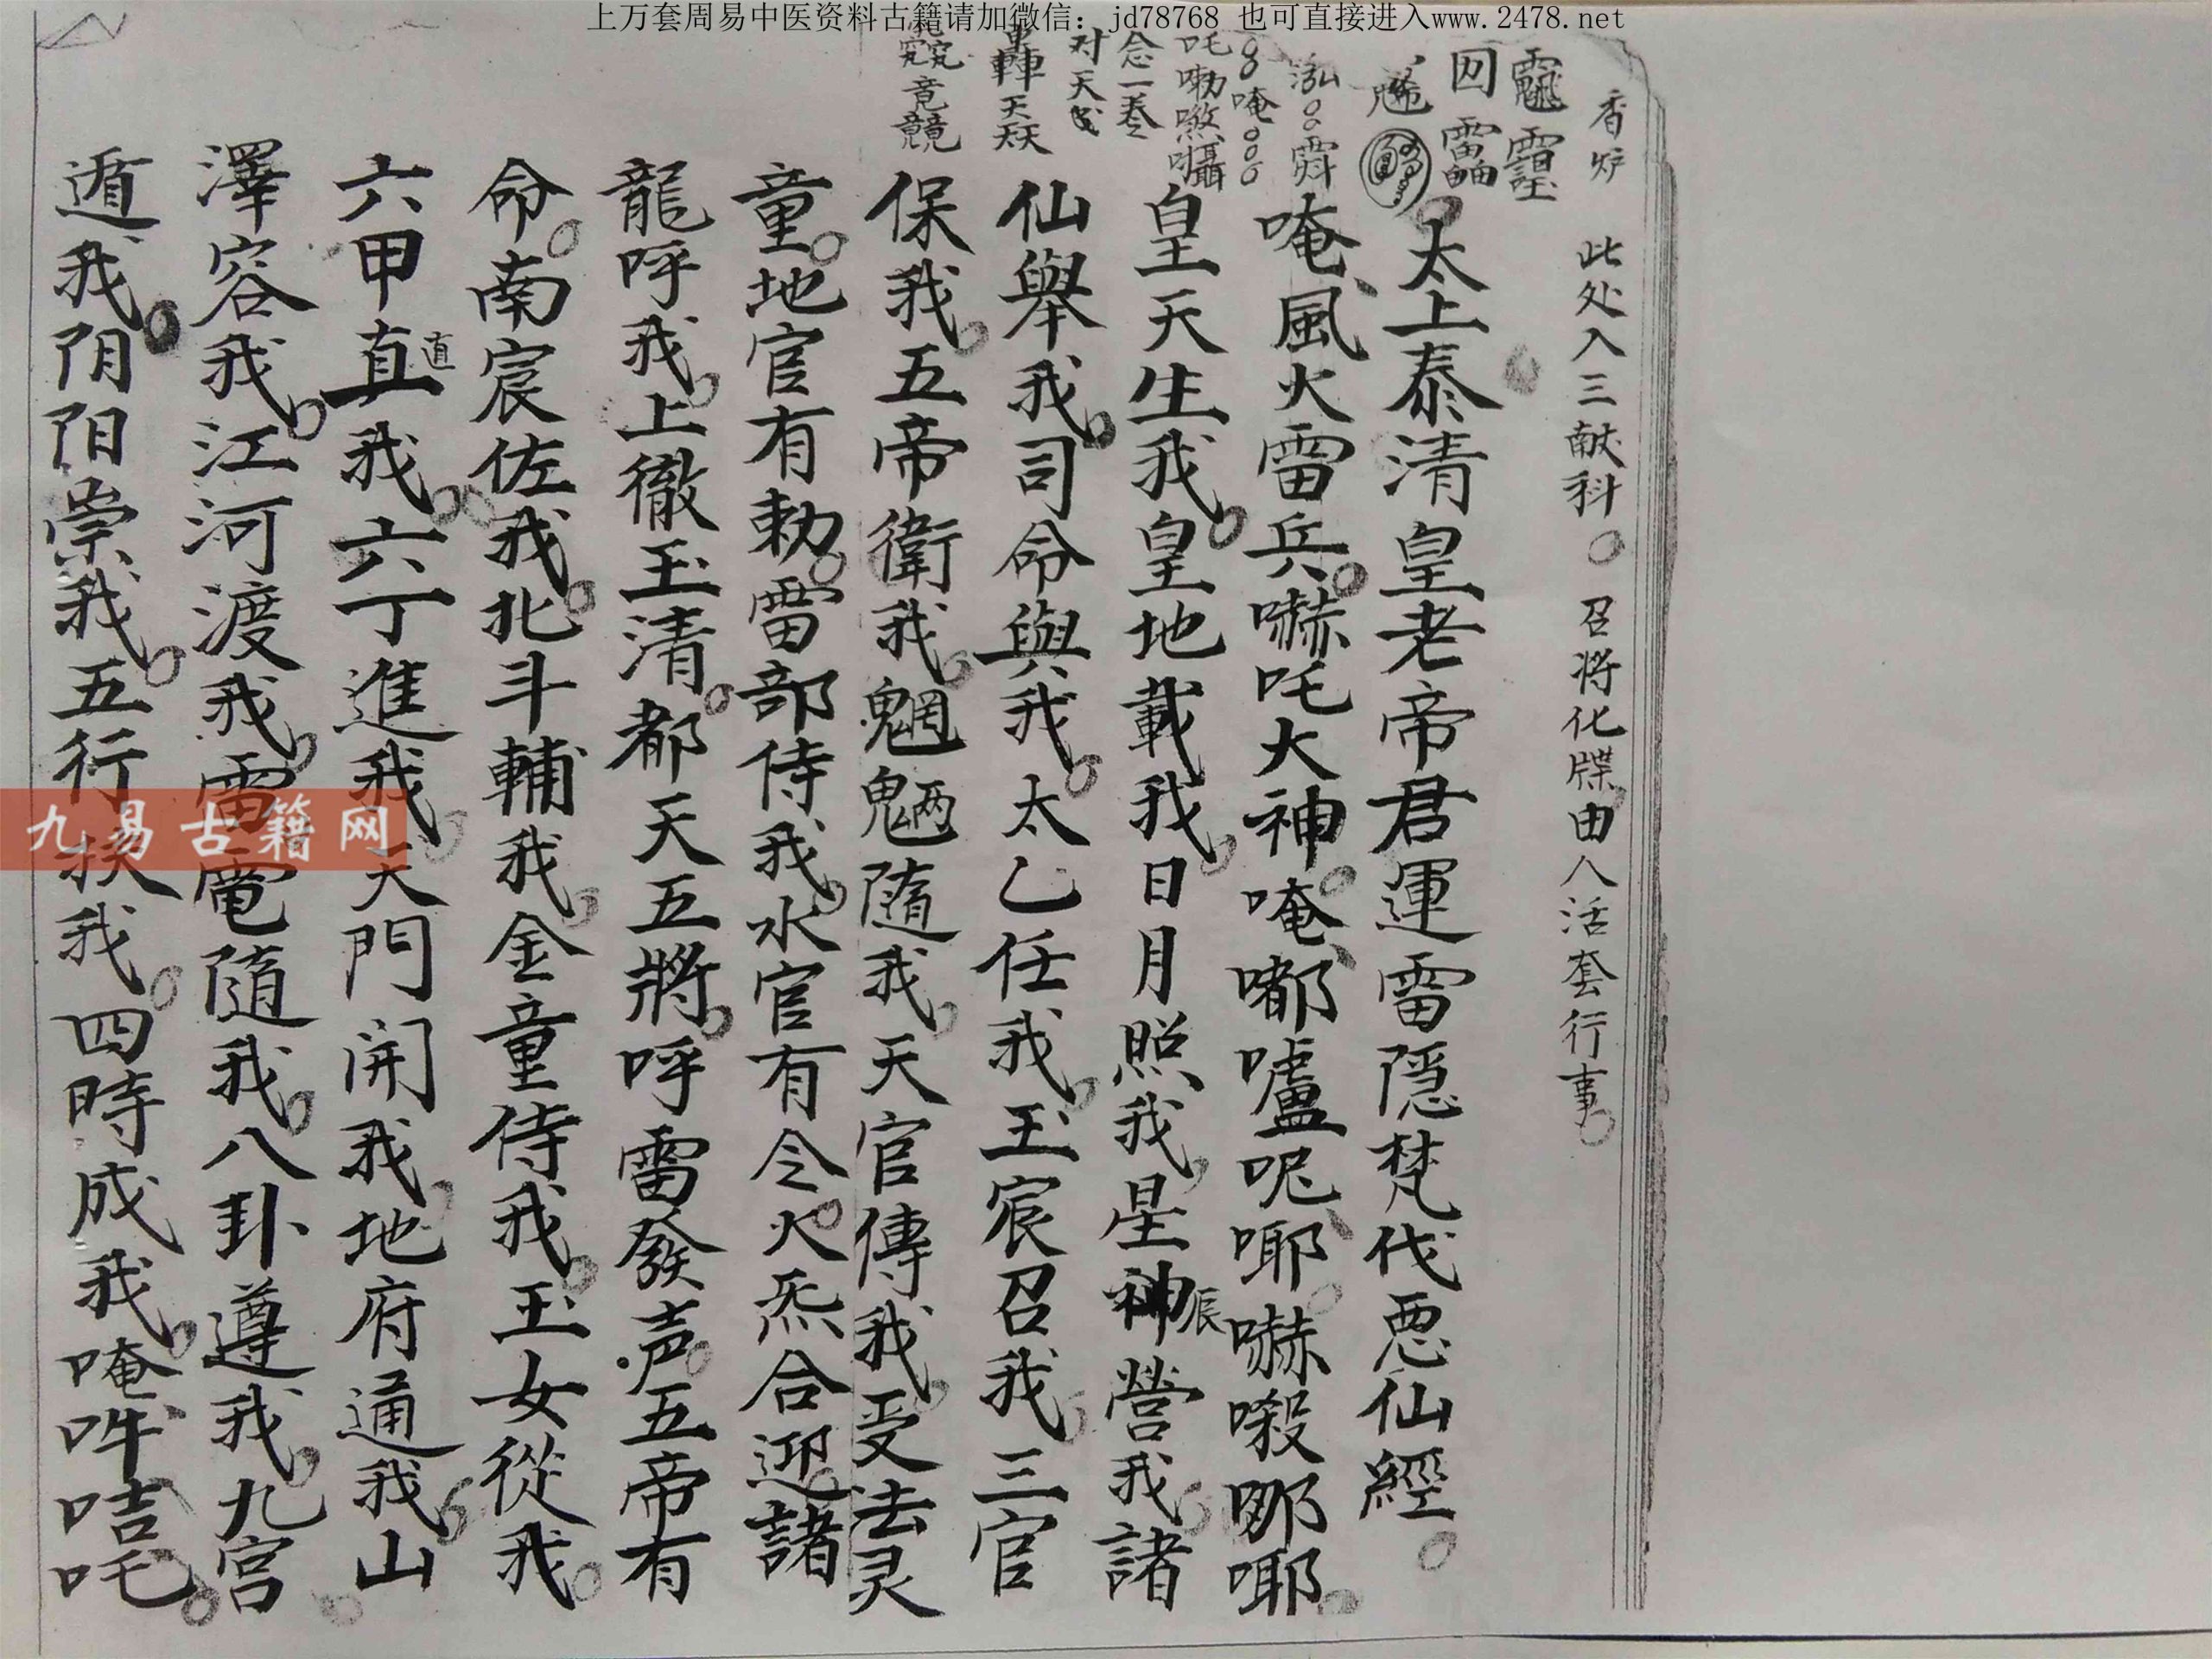 上万套周易中医资料古籍请加微信：jd78768 也可直接进入www.2478.net
香炉 此处入三献科 召将化牒由八活套行事
太上泰清皇老帝君運雷隱梵代悪仙經
唵風火雷兵嚇吒大神唵嘟嚧呢唧嚇
皇天生我皇地載我日月照我星神辰營我諸
仙舉我司命與我太乙任我玉宸召我三官
保我五帝衛我魍魎隨我天官傳我受法灵
童地官有勅雷部侍我水官有令火炁合迎諸
龍呼我上徹玉清都天五將呼雷發声五帝有
命南宸佐我北斗輔我金童侍我玉女從我
六甲直直我六丁進我天門開我地府通我山
澤容我江河渡我雷電隨我八卦遵我九宫
遁我阴阳崇我五行扶我四時成我唵吽吉吒
念一卷
对天
九易古籍网